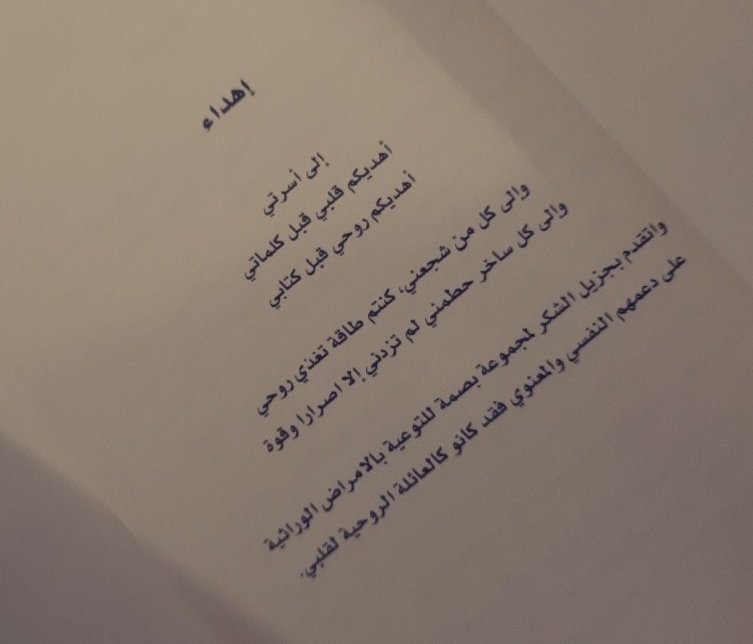 إهداء
إلى أسرتي
أهديكم قلبي قبل كلماتي
أهديكم روحي قبل كتابي
والى كل من شجعني، كنتم طاقة تغذي روحي
والى كل ساخر حطمني لم تزدني إلا اصرارا وقوة
واتقدم بجزيل الشكر لمجموعة بصمة للتوعية بالامراض الوراثية
على دعمهم النفسي والمعنوي فقد كانو كالعائلة الروحية لقلبي.